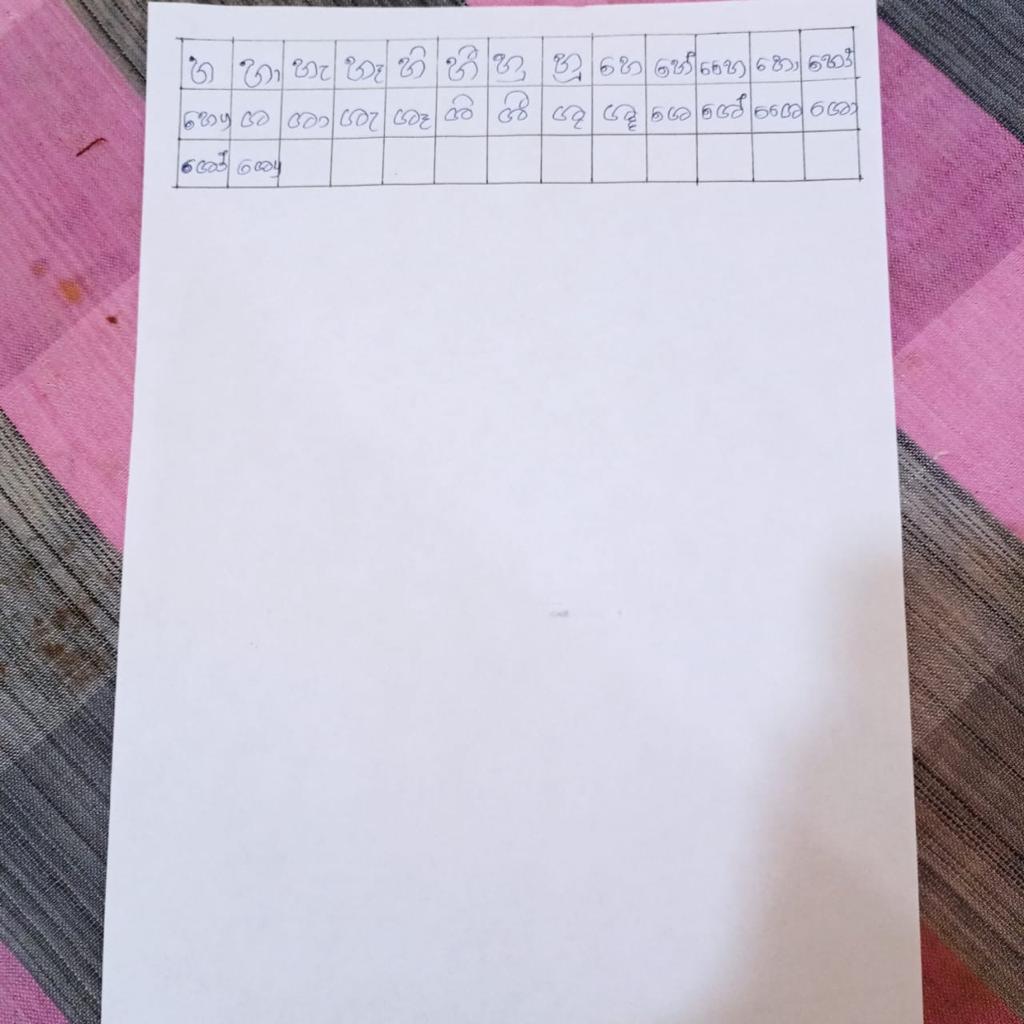 හ හා හැ හෑ හි හී හු හූ හෙ හේ හෛ හො හෝ
හෞ ශ ශා ශැ ශෑ ශි ශී ශු ශූ ශෙ ශේ ශෛ ශො
ශෝ ශෞ